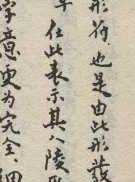 形符，也是由此形發
在此表示其人陵
字意更为完全。